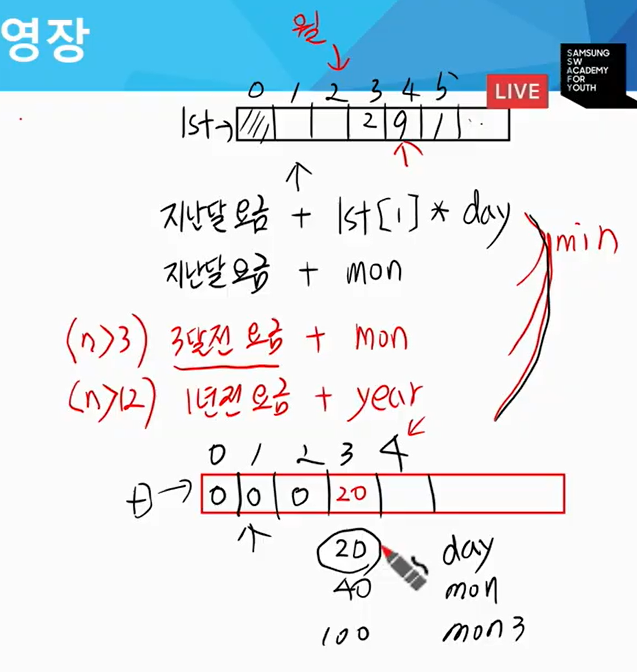 영장
월
SAMSUNG
SW
ACADEMY
FOR
YOUTH
LIVE
0 1 2 3 4 5
lst → 2 9 1 ..
지난달 요금 + lst[1] * day
지난달 요금 + mon
min
(n>3) 3달전 요금 + mon
(n>12) 1년전 요금 + year
0 1 2 3 4
D → 0 0 0 20
20 day
40 mon
100 mon3